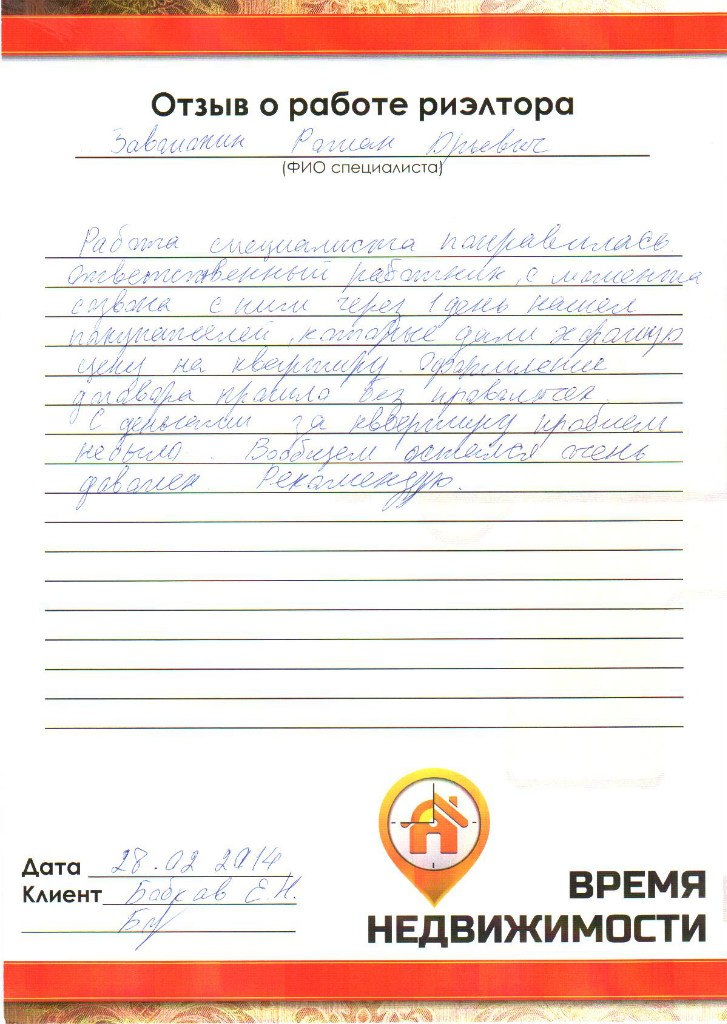 Отзыв о работе риэлтора
Роман Юрьевич
(ФИО специалиста)
Работа специалиста понравилась
ответственный работник, с момента
созвона с ним через 1 день нашел
покупателей, которые дали хорошую
цену на квартиру. Оформление
договора прошло без
С деньгами за квартиру проблем
небыло. Вообщем остался очень
доволен Рекомендую.
Дата 28.02 2014
Клиент Бобков Е.Н.
ВРЕМЯ
НЕДВИЖИМОСТИ